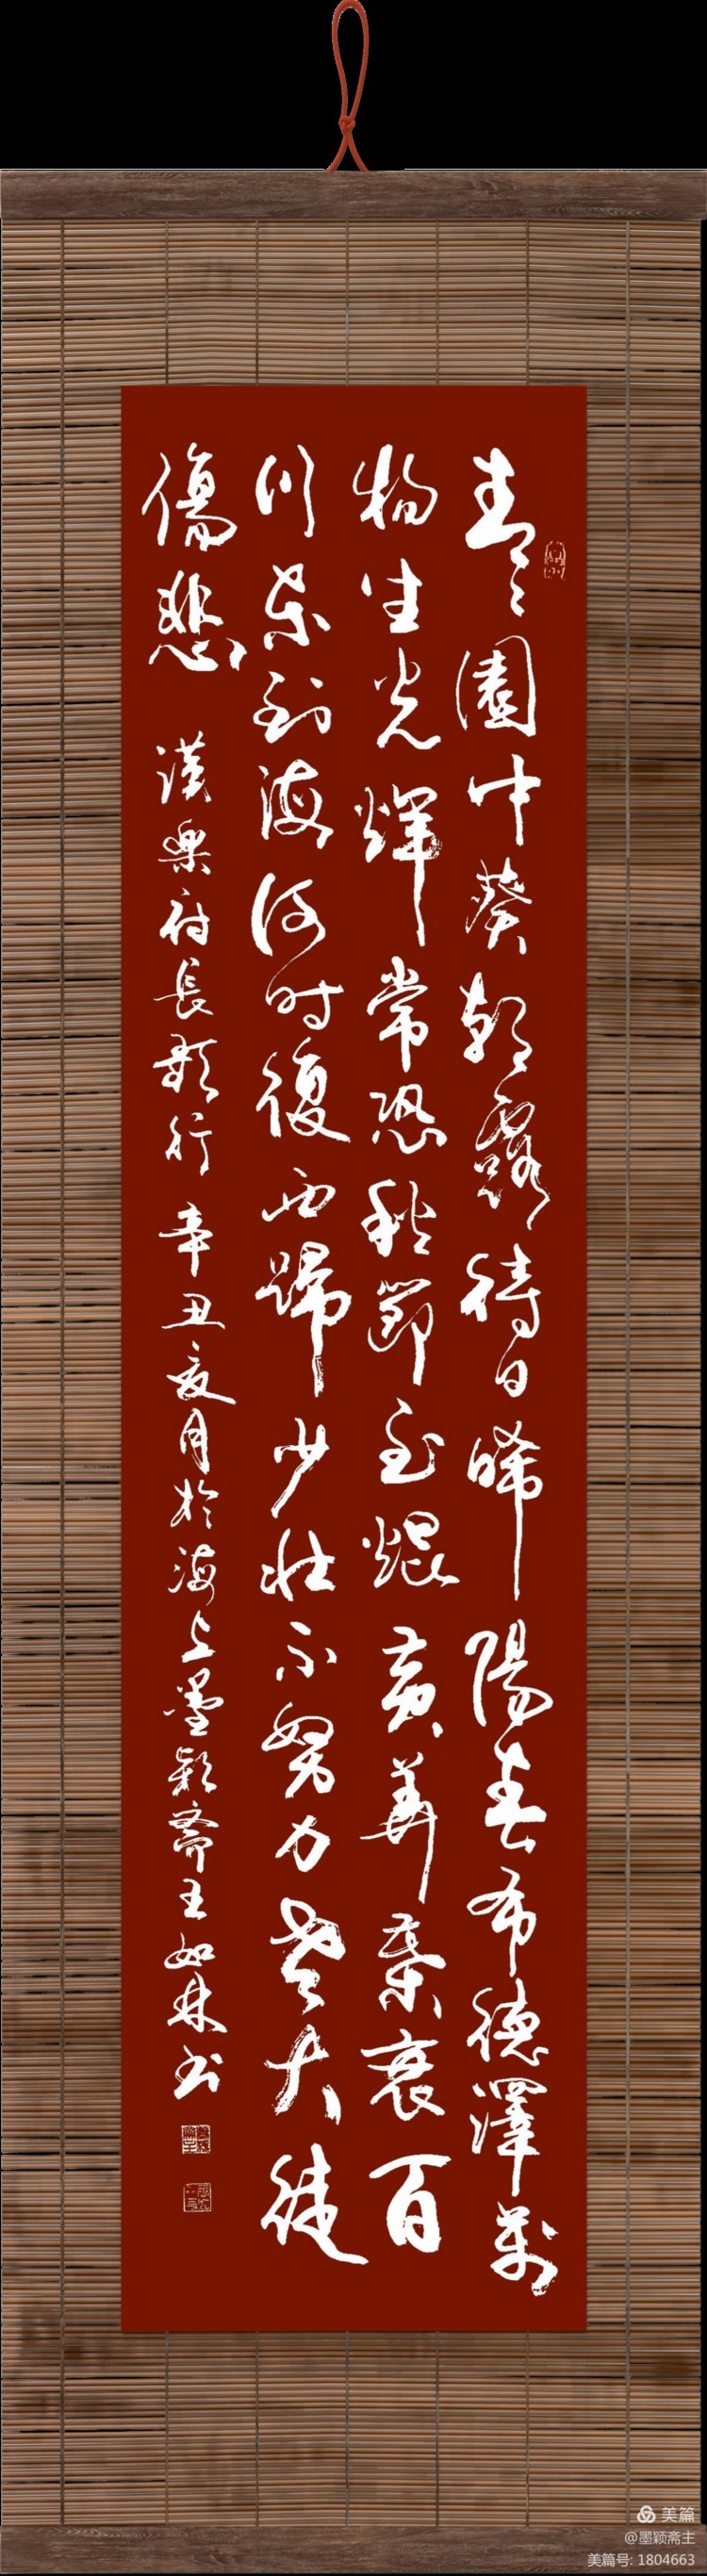 青々園中葵朝露待日晞陽春布德澤萬
物生光輝常恐秋節至焜黃華葉衰百
川東到海何时復西歸少壯不努力老大徒
傷悲 漢樂府長歌行 辛丑亥月於海上墨穎齋王如林书
美篇
@墨颖斋主
美篇号: 1804663